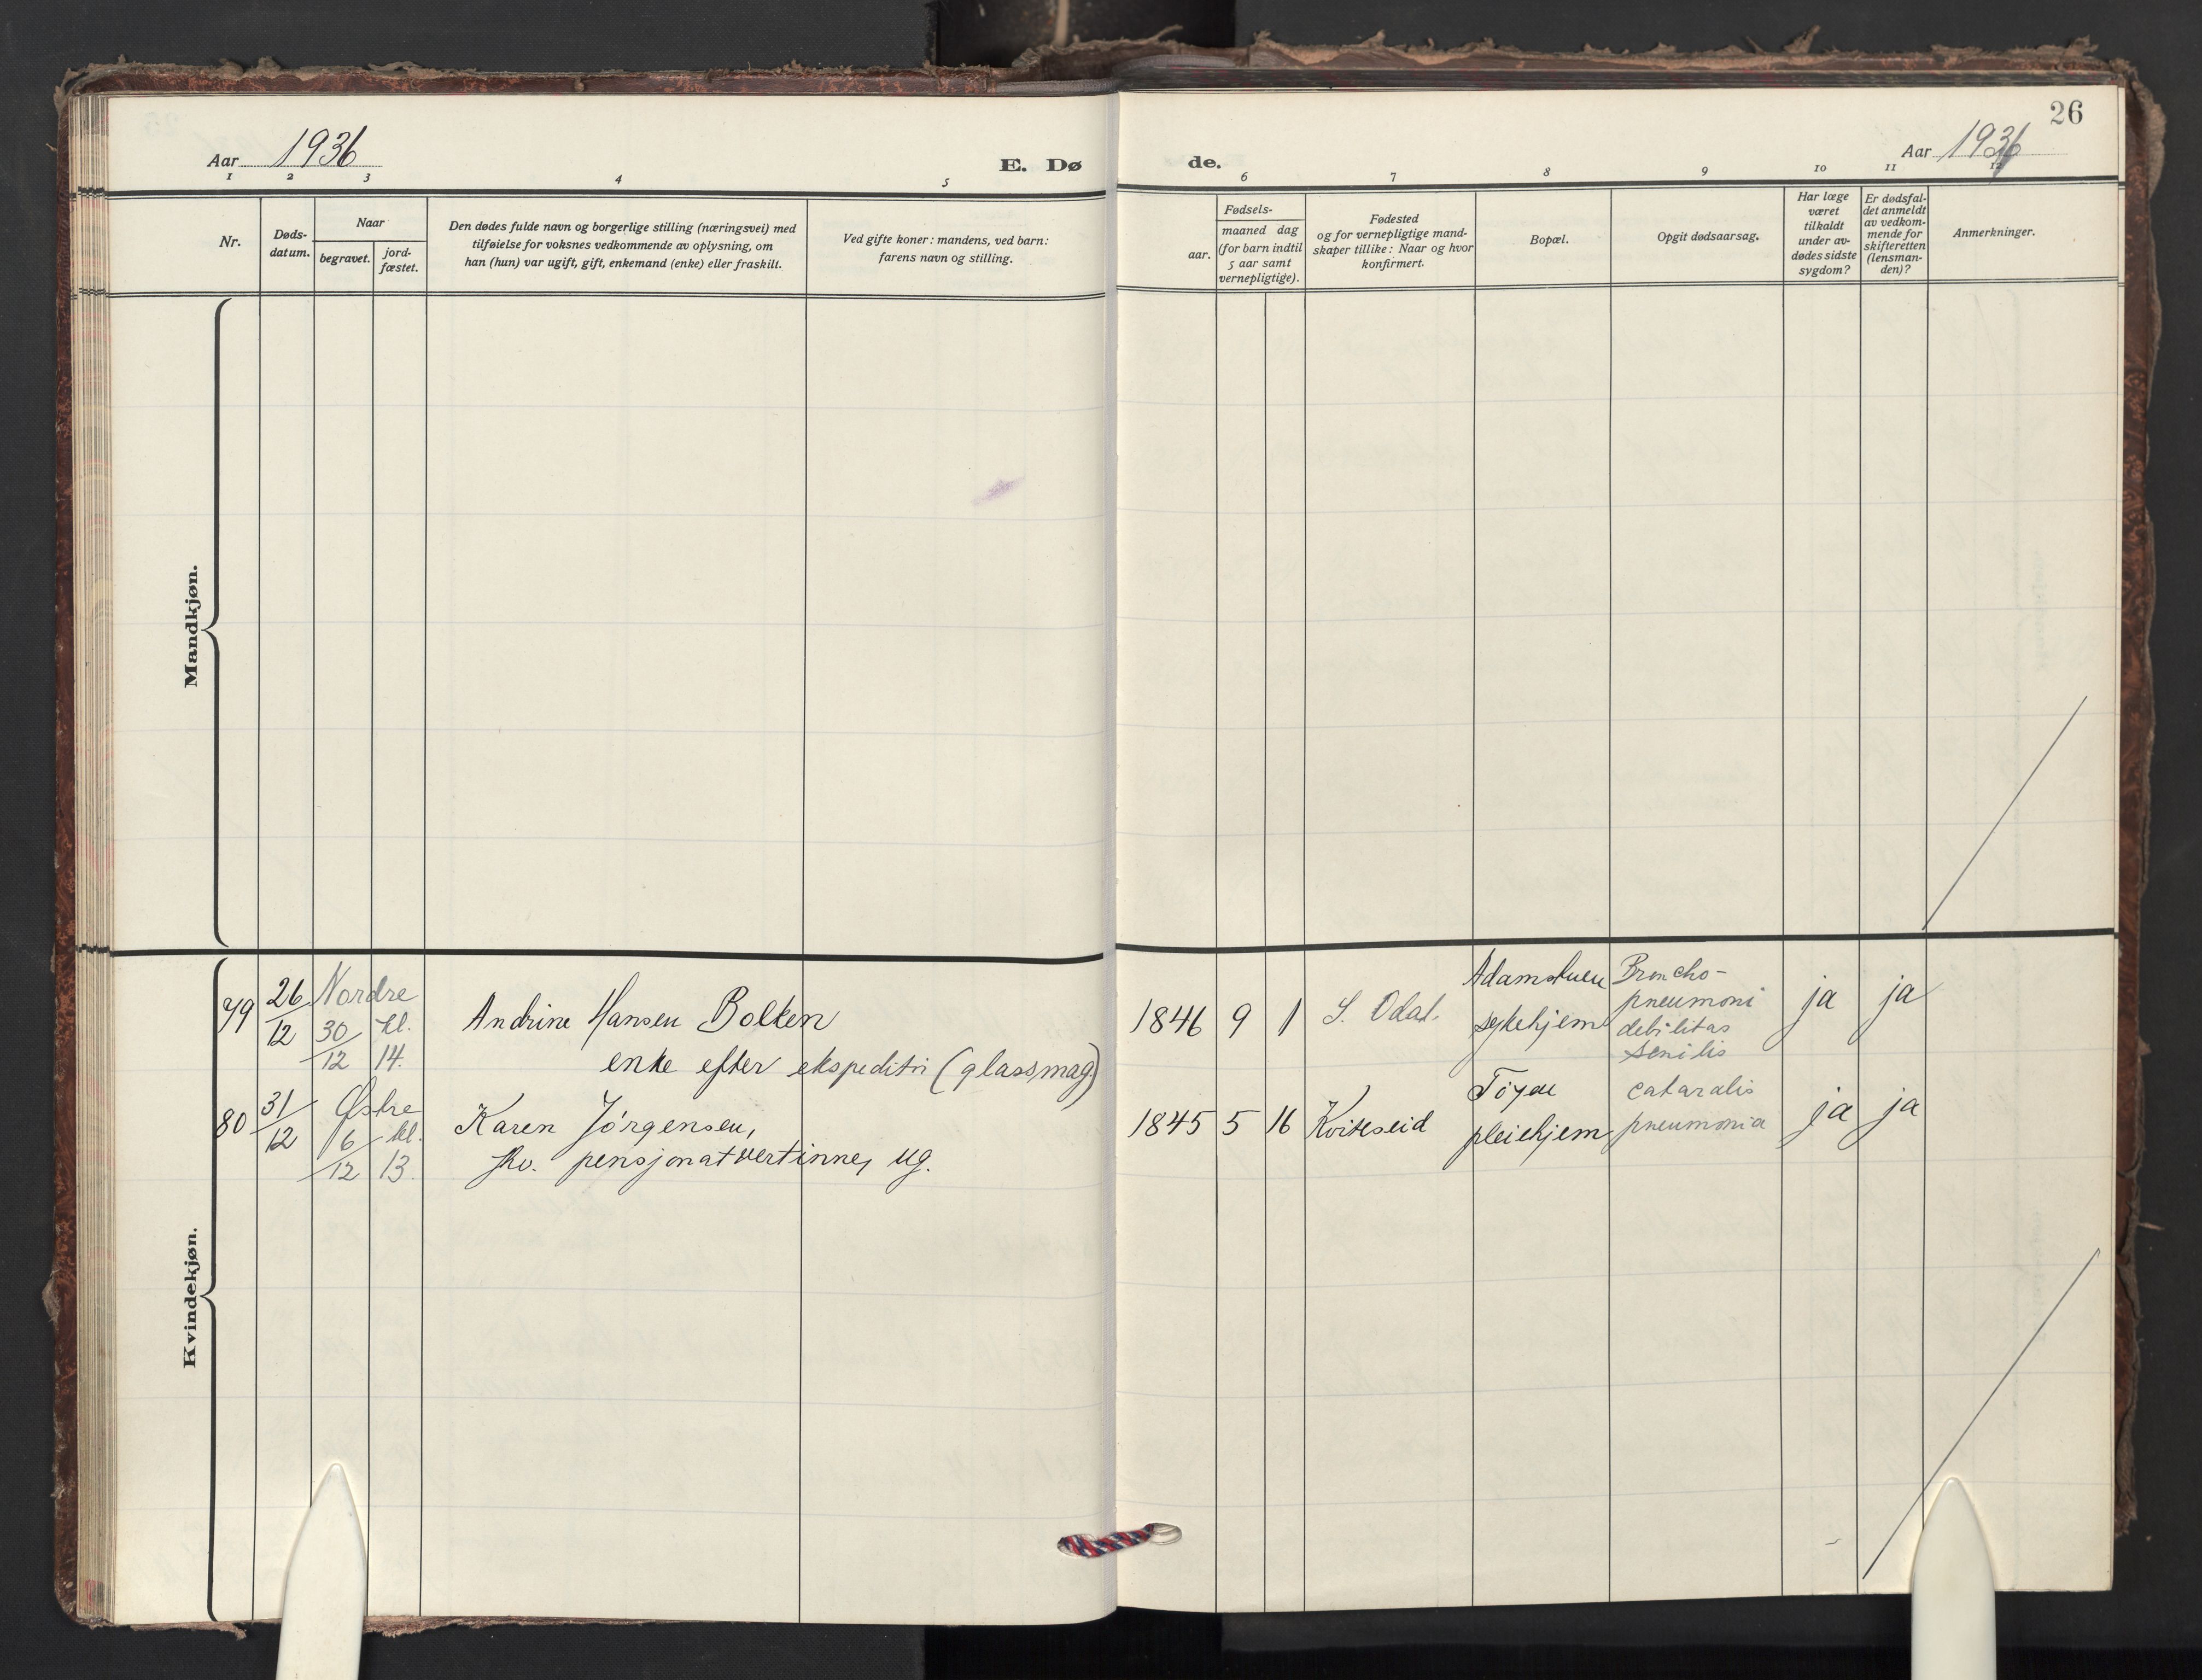 26
Aar 1936
E. Dø
de.
Aar 1936
1 2 3 4 5
6 7 8 9 10 11 12
Nr.
Døds-
datum.
Naar
begravet.
jord-
fæstet.
Den dødes fulde navn og borgerlige stilling (næringsvei) med
tilføielse for voksnes vedkommende av oplysning, om
han (hun) var ugift, gift, enkemand (enke) eller fraskilt.
Ved gifte koner: mandens, ved barn:
farens navn og stilling.
Fødsels-
aar.
maaned dag
(for barn indtil
5 aar samt
vernepligtige).
Fødested
og for vernepligtige mand-
skaper tillike: Naar og hvor
konfirmert.
Bopæl.
Opgit dødsaarsag.
Har læge
været
tilkaldt
under av-
dødes sidste
sygdom?
Er dødsfal-
det anmeldt
av vedkom-
mende for
skifteretten
(lensman-
den)?
Anmerkninger.
Mandkjøn.
Kvindekjøn.
79
26/12
Nordre
30/12
kl.
14.
Andrine Hansen Bolken
enke efter ekspeditør (glassmag)
1846 9 1
S. Odal.
Adamstuen
sykehjem
Broncho-
pneumoni
debilitas
senilis
ja
ja
80
31/12
Østre
6/12
kl.
13.
Karen Jørgensen,
fhv. pensjonatvertinne, ug.
1845 5 16
Kviteseid
Tøyen
pleiehjem
cataralis
pneumonia
ja
ja